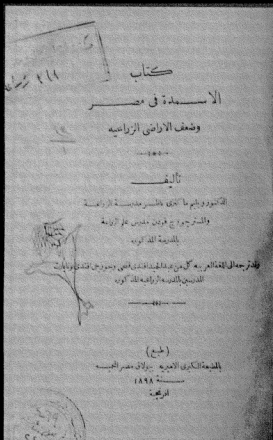 كتاب
الاسمدة فى مصر
وضعف الاراضى الزراعيه
تأليف
الدكتور وليم ماكنزى ناظر مدرسة الزراعة
والمستر جورج فودن مدرس علم الزراعة
بالمدرسة المذكوره
وقد ترجمه الى اللغة العربيه كل من عبد الحميد افندى فتحى وجورجى افندى
المدرسين بالمدرسة الزراعية المذكوره
(طبع)
بالمطبعة الكبرى الاميريه ببولاق مصر المحميه
سنة ١٨٩٨
افرنجية